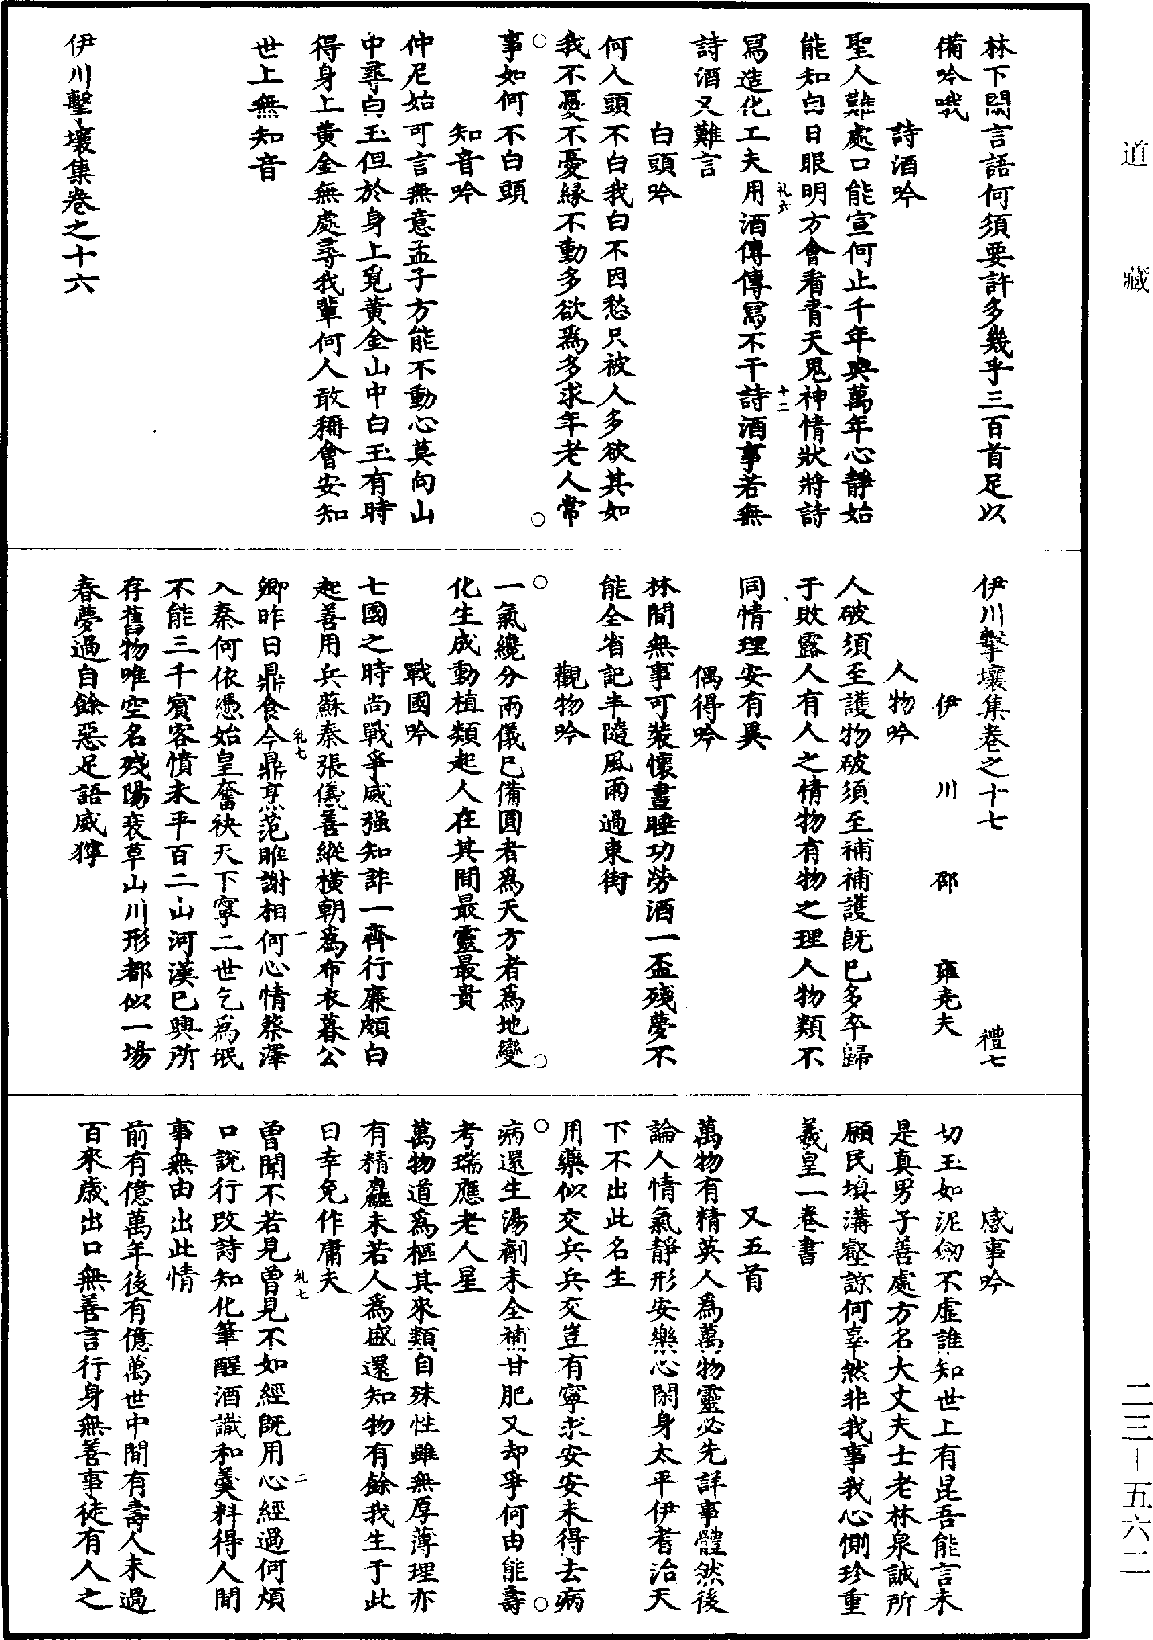 道藏
林下閑言語何須要許多幾乎三百首足以
備吟哦
詩酒吟
聖人難處口能宣何止千年與萬年心靜始
能知白日眼明方會看青天鬼神情狀將詩
寫造化工夫用酒傳傳寫不干詩酒事若無
礼六
十二
詩酒又難言
白頭吟
何人頭不白我白不因愁只被人多欲其如
我不憂不憂緣不動多欲爲多求年老人常
事如何不白頭
知音吟
仲尼始可言無意孟子方能不動心莫向山
中尋白玉但於身上覓黃金山中白玉有時
得身上黃金無處尋我輩何人敢稱會安知
世上無知音
伊川擊壤集卷之十六
伊川擊壤集卷之十七 禮七
伊川邵雍堯夫
人物吟
人破須至護物破須至補補護旣已多卒歸
于敗露人有人之情物有物之理人物類不
同情理安有異
偶得吟
林間無事可裝懷晝睡功勞酒一盃殘夢不
能全省記半隨風雨過東街
觀物吟
一氣纔分兩儀已備圓者爲天方者爲地變
化生成動植類起人在其間最靈最貴
戰國吟
七國之時尚戰爭威强知詐一齊行廉頗白
起善用兵蘇秦張儀善縱橫朝爲布衣暮公
卿昨日鼎食今鼎烹范睢謝相何心情蔡澤
礼七
一
入秦何依憑始皇奮袂天下寧二世乞爲氓
不能三千賓客憤未平百二山河漢已興所
存舊物唯空名殘陽衰草山川形都似一場
春夢過自餘惡足語威獰
感事吟
切玉如泥劒不虛誰知世上有昆吾能言未
是真男子善處方名大丈夫士老林泉誠所
願民填溝壑諒何辜然非我事我心惻珍重
羲皇一卷書
又五首
萬物有精英人爲萬物靈必先詳事體然後
論人情氣靜形安樂心閑身太平伊耆治天
下不出此名生
用藥似交兵兵交豈有寧求安安未得去病
病還生湯劑未全補甘肥又却爭何由能壽
考瑞應老人星
萬物道爲樞其來類自殊性雖無厚薄理亦
有精麤未若人爲盛還知物有餘我生于此
日幸免作庸夫
曾聞不若見曾見不如經旣用心經過何煩
礼七
二
口說行改詩知化筆醒酒識和羹料得人間
事無由出此情
前有億萬年後有億萬世中間有壽人未過
百來歲出口無善言行身無善事徒有人之
二三—五六二